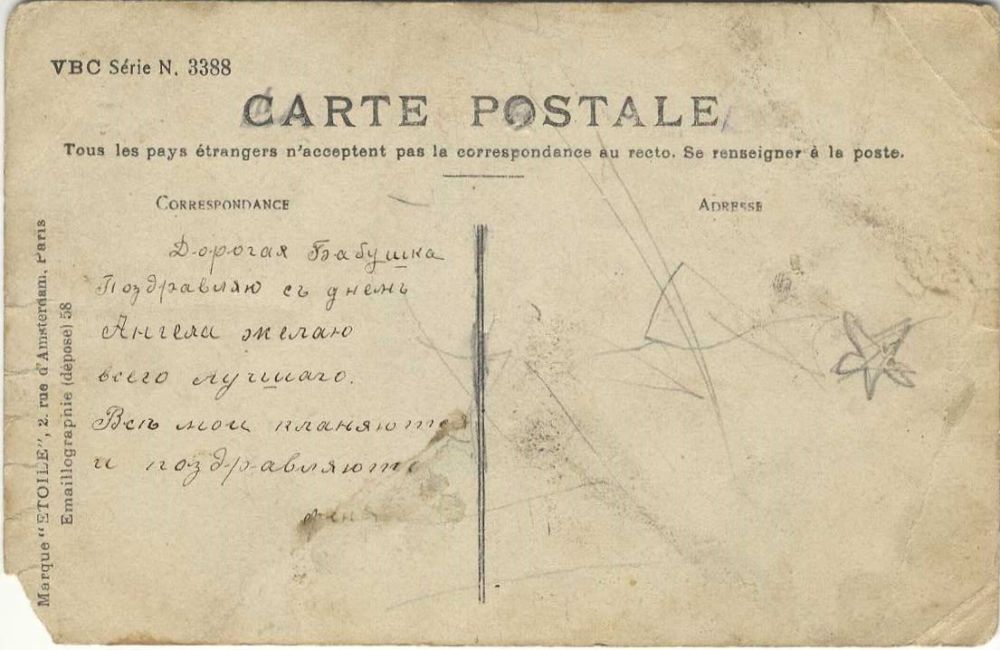 VBC Série N. 3388
CARTE POSTALE
Tous les pays étrangers n'acceptent pas la correspondance au recto. Se renseigner à la poste.
CORRESPONDANCE
ADRESSE
Дорогая Бабушка
Поздравляю съ днемъ
Ангела желаю
всего лучшаго.
Всѣ мои кланяются
и поздравляютъ
Marque "ETOILE", 2. rue d'Amsterdam. Paris
Emaillographie (déposé) 58